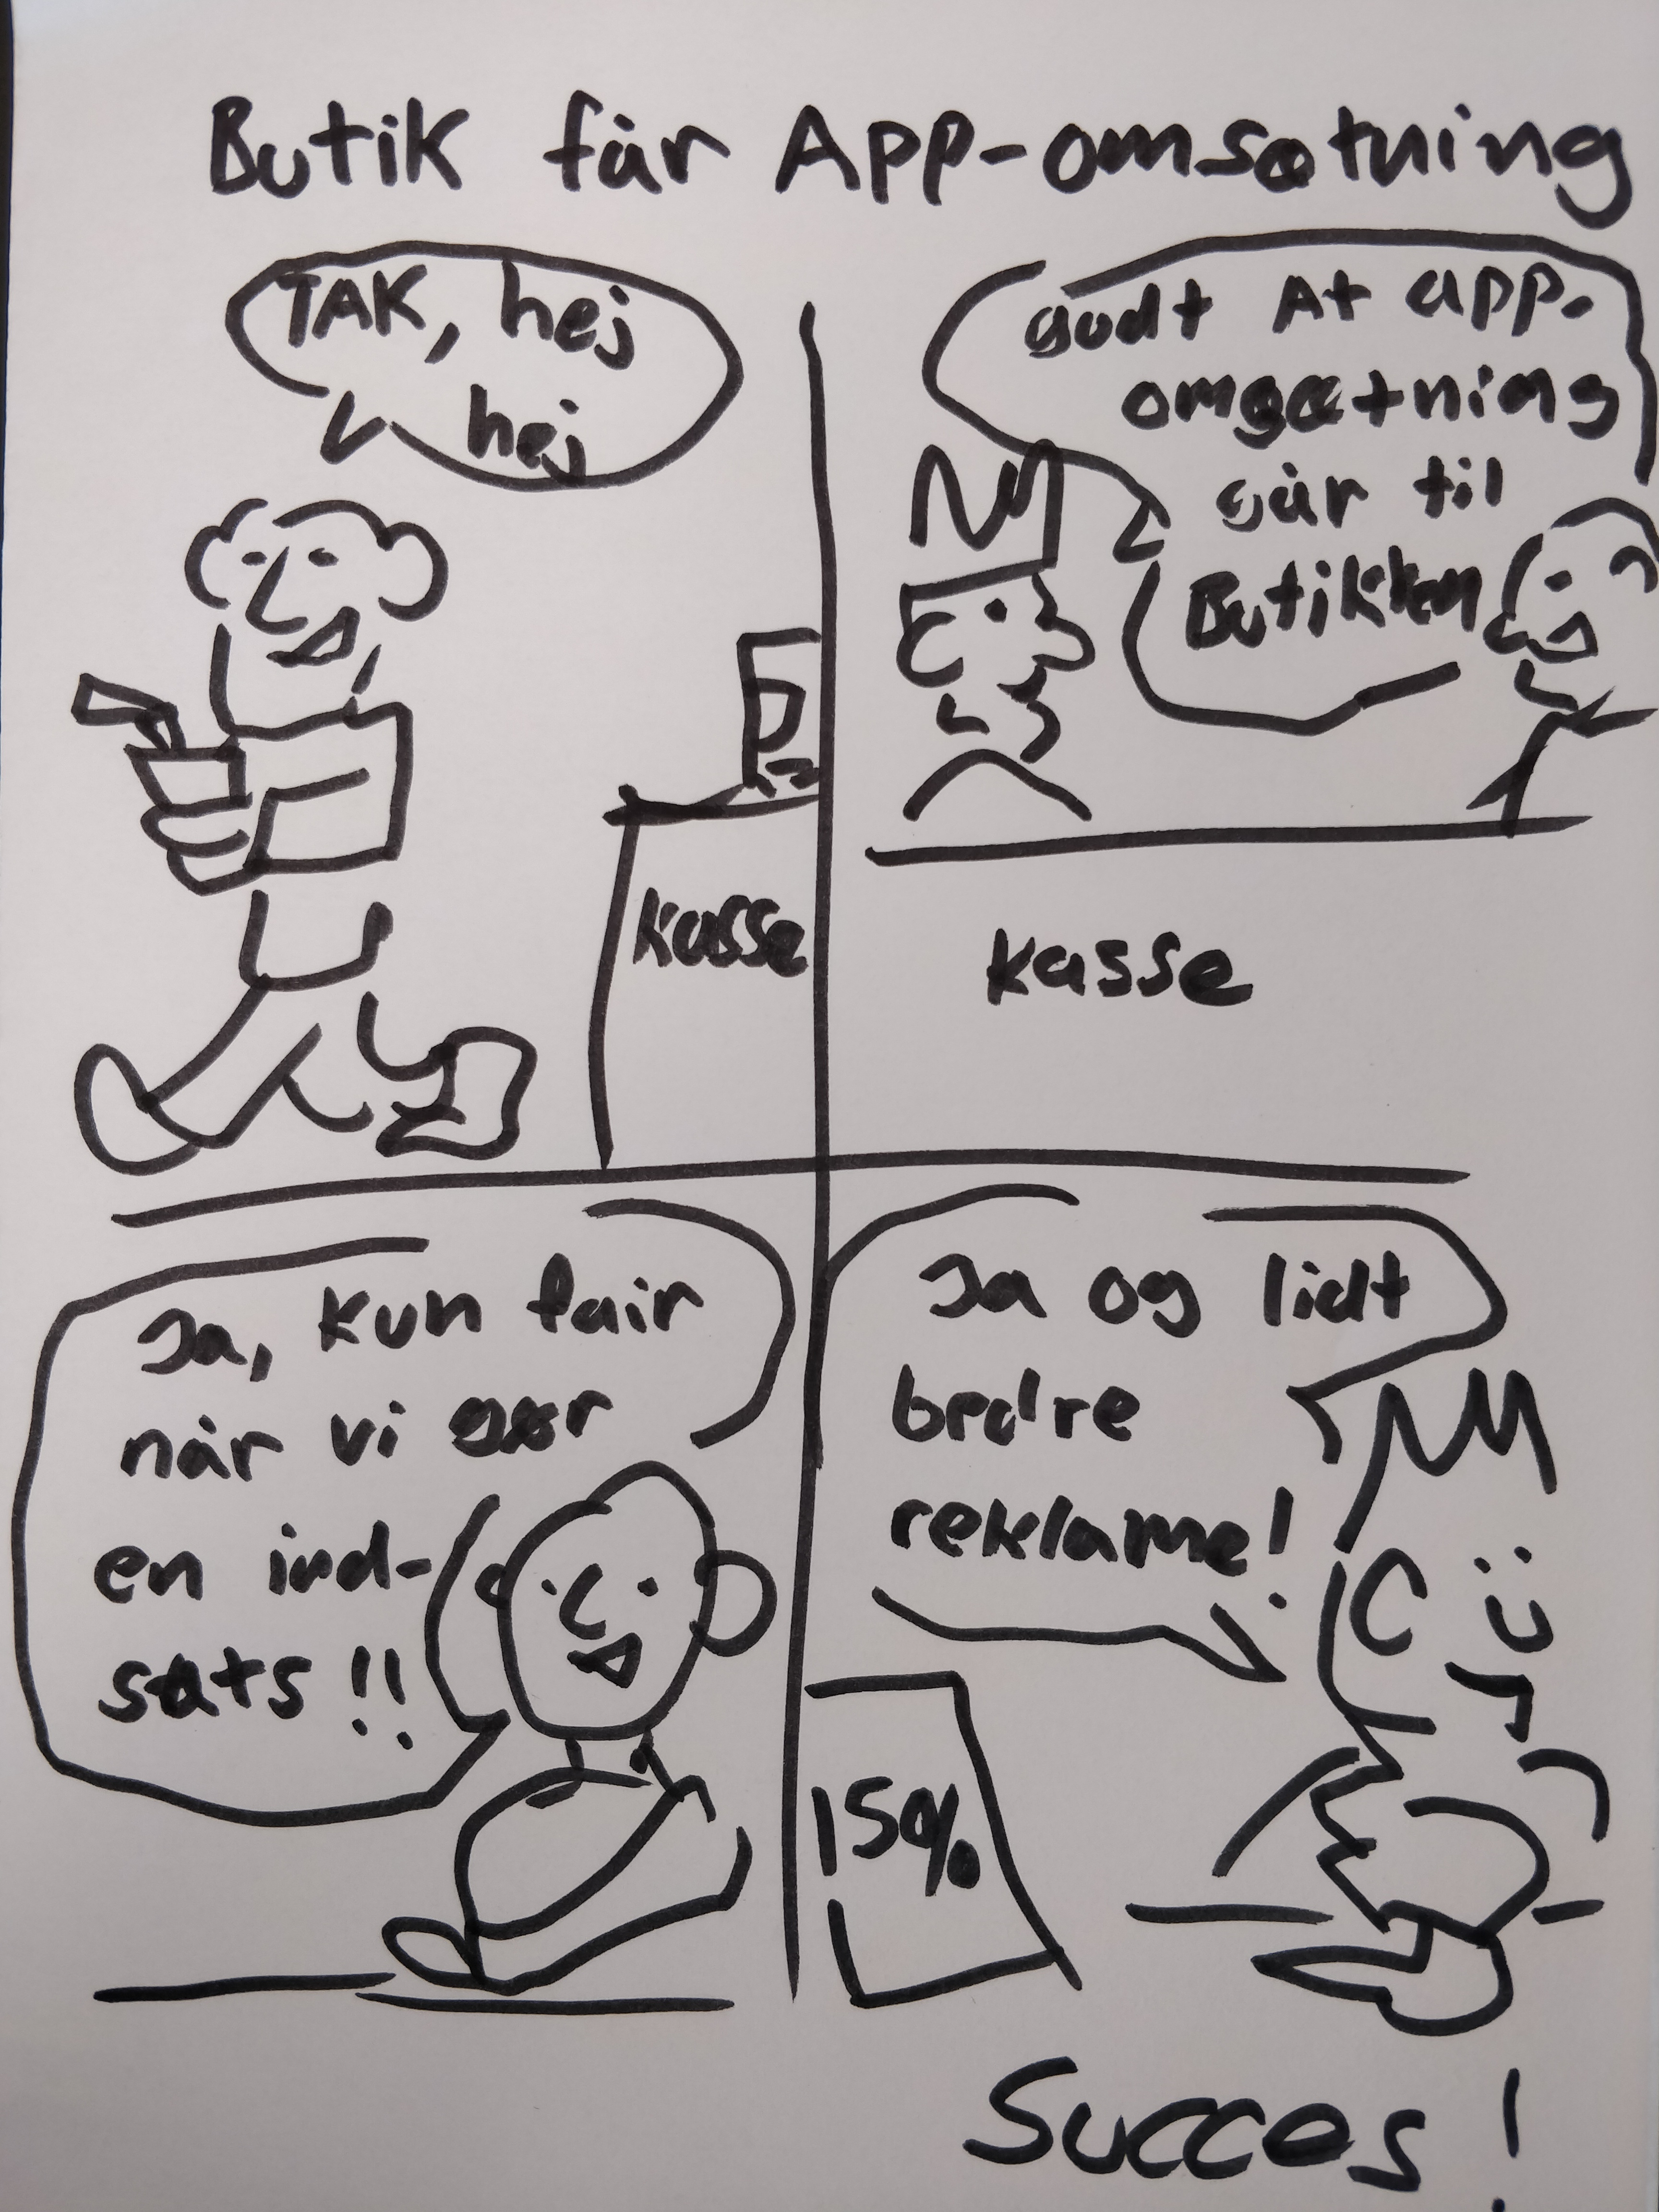 Butik får App-omsætning
TAK, hej
hej
godt At app-
omsætning
går til
Butikken
kasse
kasse
Ja, kun fair
når vi gør
en ind-
sats!!
Ja og lidt
bedre
reklame!
15%
Succes!